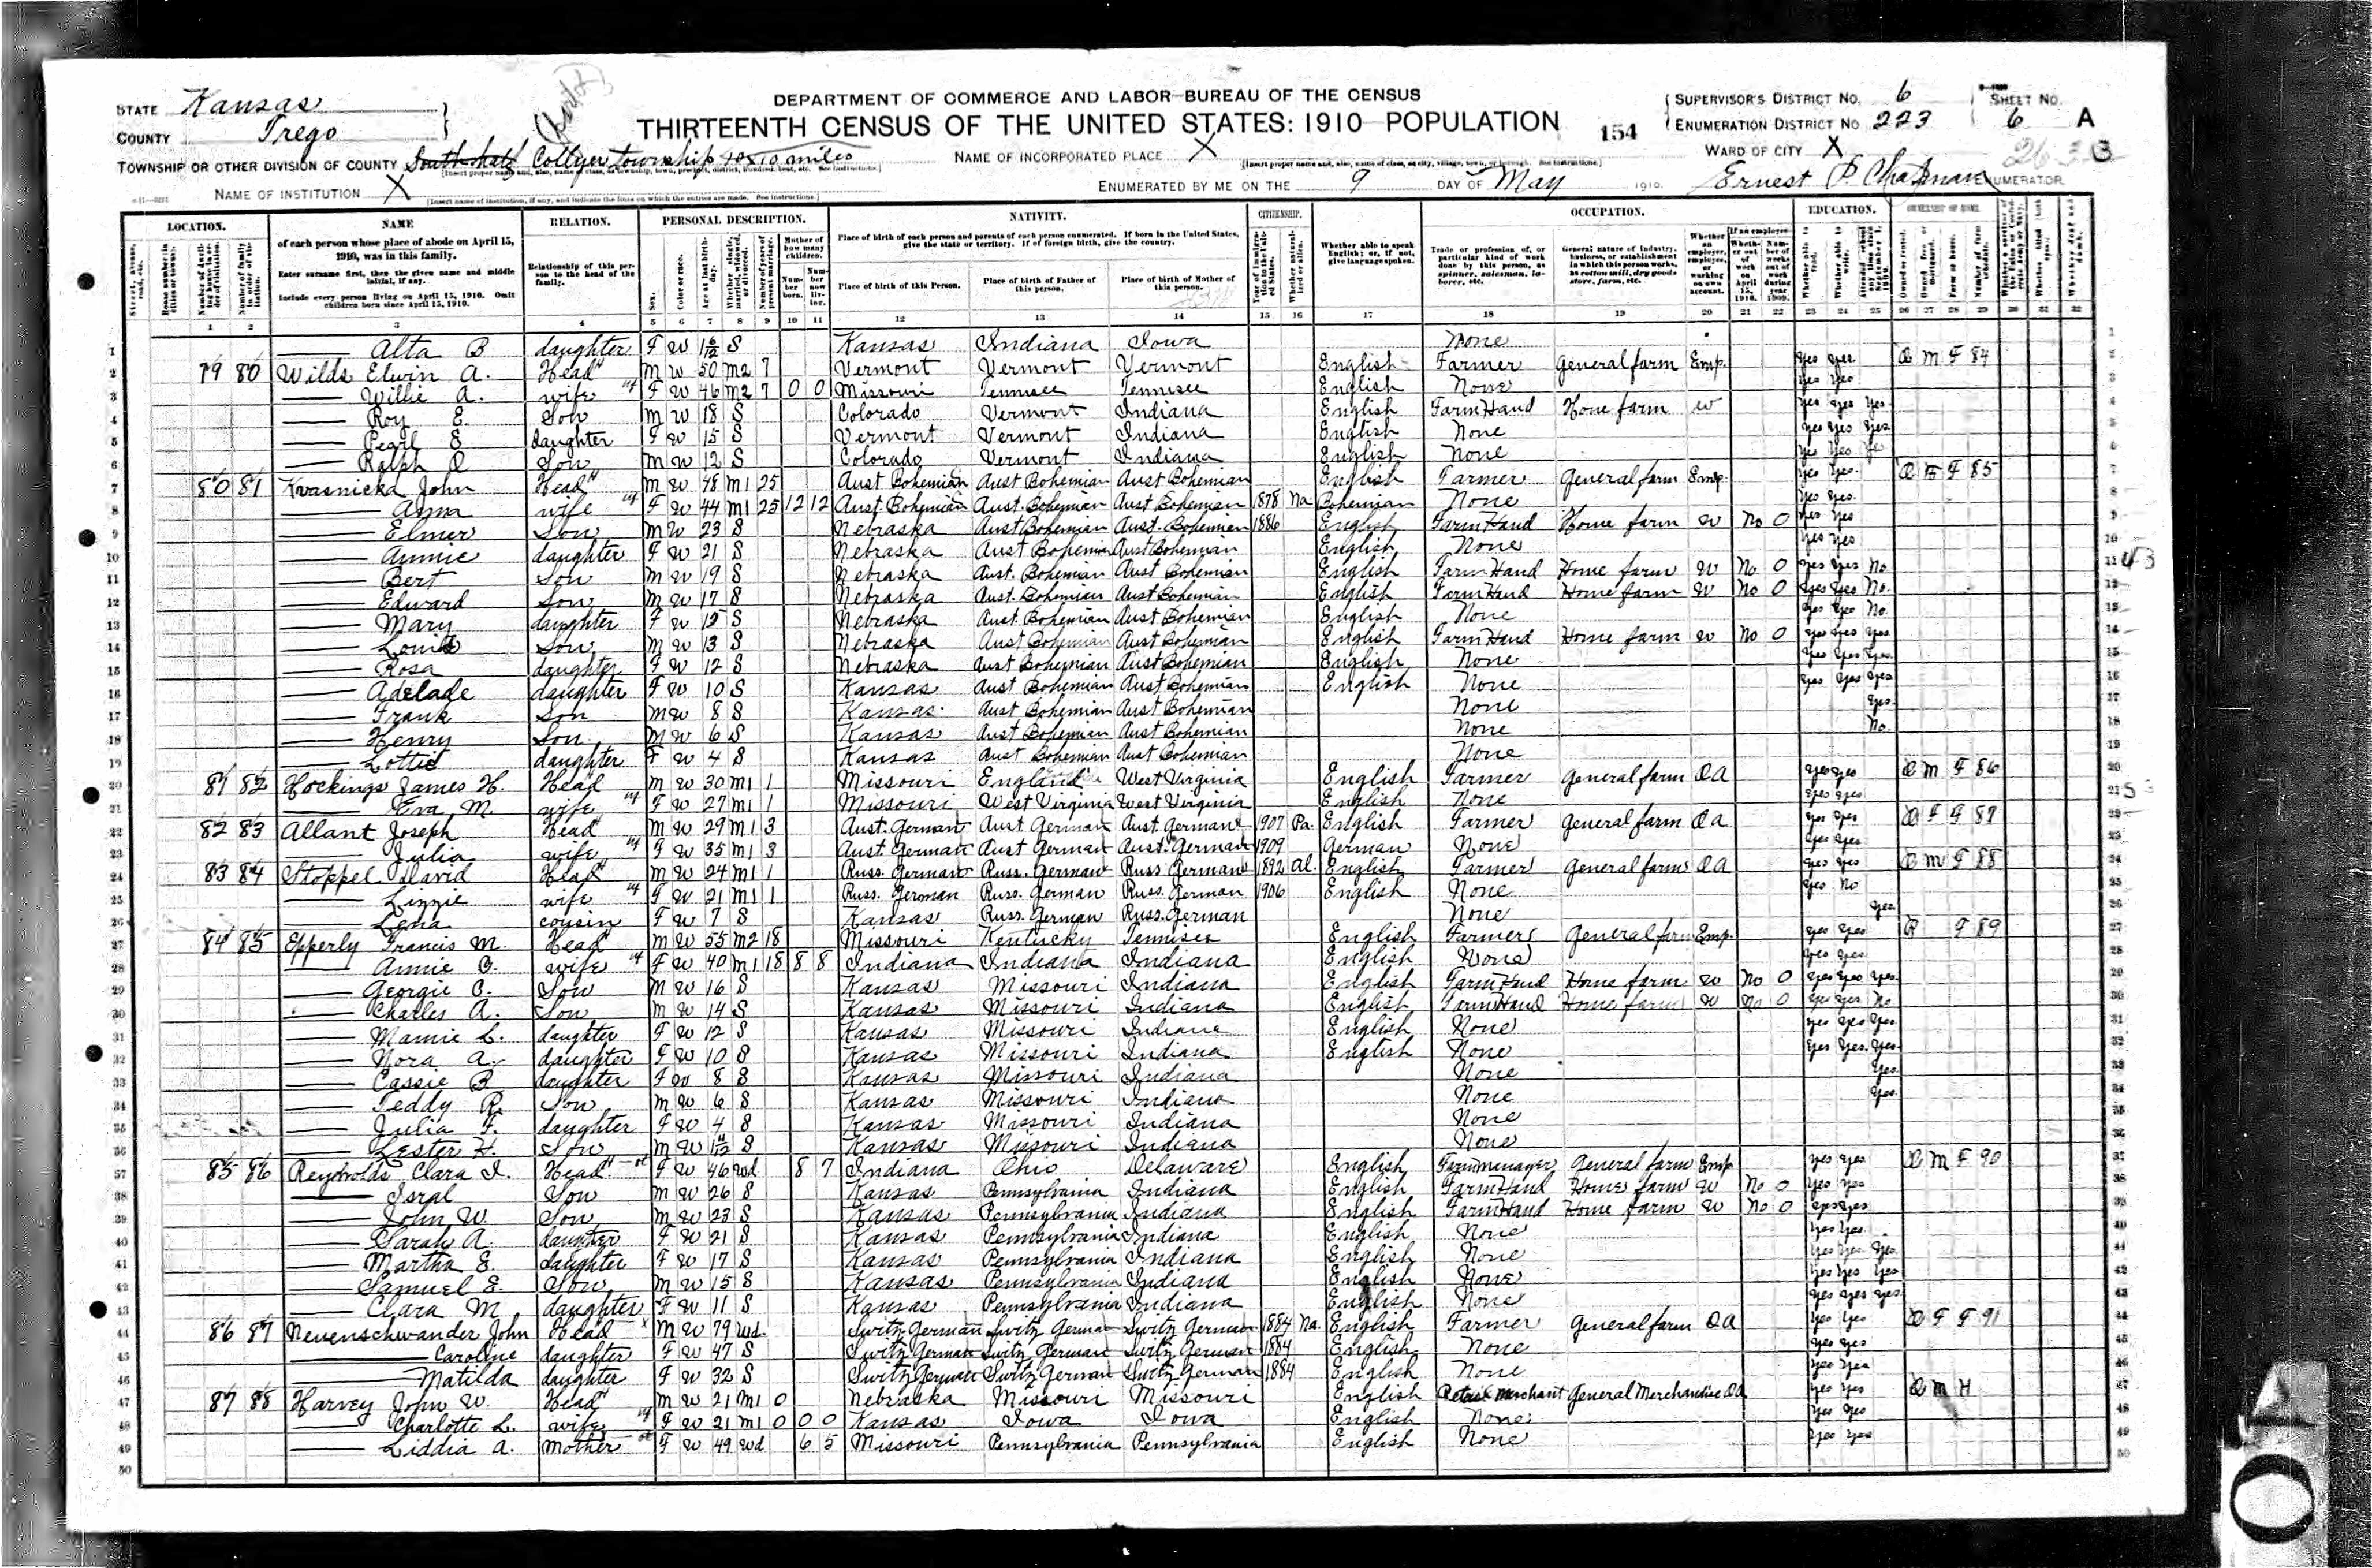 DEPARTMENT OF COMMERCE AND LABOR—BUREAU OF THE CENSUS
THIRTEENTH CENSUS OF THE UNITED STATES: 1910 POPULATION
STATE Kansas
COUNTY Trego
TOWNSHIP OR OTHER DIVISION OF COUNTY Collyer Township 10x10 miles
NAME OF INSTITUTION X
NAME OF INCORPORATED PLACE X
ENUMERATED BY ME ON THE 9 DAY OF May 1910.
154
SUPERVISOR'S DISTRICT No. 6
ENUMERATION DISTRICT No 223
SHEET No. 6 A
WARD OF CITY X
Ernest P. Chapman ENUMERATOR
LOCATION. NAME RELATION. PERSONAL DESCRIPTION. NATIVITY. CITIZENSHIP. OCCUPATION. EDUCATION. OWNERSHIP OF HOME.
of each person whose place of abode on April 15, 1910, was in this family.
Enter surname first, then the given name and middle initial, if any.
Include every person living on April 15, 1910. Omit children born since April 15, 1910.
Relationship of this person to the head of the family.
Place of birth of each person and parents of each person enumerated. If born in the United States, give the state or territory. If of foreign birth, give the country.
Place of birth of this Person. Place of birth of Father of this person. Place of birth of Mother of this person.
Whether able to speak English; or, if not, give language spoken.
Trade or profession of, or particular kind of work done by this person, as spinner, salesman, laborer, etc.
General nature of industry, business, or establishment in which this person works, as cotton mill, dry goods store, farm, etc.
1 Alta B daughter F W 1 6/12 S Kansas Indiana Iowa None
2 79 80 Wilds Elwin A. Head M W 50 M2 7 Vermont Vermont Vermont English Farmer General farm Emp. Yes Yes O M F 84
3 Willie A. wife F W 46 M2 7 0 0 Missouri Tennisee Tennisee English None Yes Yes
4 Roy E. Son M W 18 S Colorado Vermont Indiana English Farm Hand Home farm W Yes Yes Yes
5 Pearl E daughter F W 15 S Vermont Vermont Indiana English None Yes Yes Yes
6 Ralph O Son M W 12 S Colorado Vermont Indiana English None Yes Yes
7 80 81 Kvasnicka John Head M W 48 M1 25 Aust Bohemian Aust Bohemian Aust Bohemian English Farmer General farm Emp. Yes Yes O F F 85
8 Anna wife F W 44 M1 25 12 12 Aust. Bohemian Aust. Bohemian Aust Bohemian 1878 Na Bohemian None Yes Yes
9 Elmer Son M W 23 S Nebraska Aust Bohemian Aust. Bohemian 1886 English Farm Hand Home farm W No 0 Yes Yes
10 Annie daughter F W 21 S Nebraska Aust Bohemian Aust Bohemian English None Yes Yes
11 Bert Son M W 19 S Nebraska Aust. Bohemian Aust Bohemian English Farm Hand Home farm W No 0 Yes Yes No
12 Edward Son M W 17 S Nebraska Aust. Bohemian Aust Bohemian English Farm Hand Home farm W No 0 Yes Yes No
13 Mary daughter F W 15 S Nebraska Aust. Bohemian Aust Bohemian English None Yes Yes No
14 Louis Son M W 13 S Nebraska Aust Bohemian Aust Bohemian English Farm Hand Home farm W No 0 Yes Yes Yes
15 Rosa daughter F W 12 S Nebraska Aust Bohemian Aust Bohemian English None Yes Yes Yes
16 Adelade daughter F W 10 S Kansas Aust Bohemian Aust Bohemian English None Yes Yes Yes
17 Frank Son M W 8 S Kansas Aust Bohemian Aust Bohemian None Yes
18 Henry Son M W 6 S Kansas Aust Bohemian Aust Bohemian None No
19 Lottie daughter F W 4 S Kansas Aust Bohemian Aust Bohemian None
20 81 82 Hockings James H. Head M W 30 M1 1 Missouri England West Virginia English Farmer General farm OA Yes Yes O M F 86
21 Eva M. wife F W 27 M1 1 Missouri West Virginia West Virginia English None Yes Yes
22 82 83 Allant Joseph Head M W 29 M1 3 Aust. German Aust German Aust. German 1907 Pa. English Farmer General farm Oa Yes Yes O F F 87
23 Julia wife F W 35 M1 3 Aust. German Aust German Aust. German 1909 German None Yes Yes
24 83 84 Stoppel David Head M W 24 M1 1 Russ. German Russ. German Russ German 1892 Al. English Farmer General farm OA Yes Yes O M F 88
25 Lizzie wife F W 21 M1 1 Russ. German Russ. German Russ. German 1906 English None Yes No
26 Lena cousin F W 7 S Kansas Russ. German Russ. German None Yes
27 84 85 Epperly Francis M. Head M W 55 M2 18 Missouri Kentucky Tennisee English Farmer General farm Emp. Yes Yes R F 89
28 Annie B. wife F W 40 M1 18 8 8 Indiana Indiana Indiana English None Yes Yes
29 Georgie C. Son M W 16 S Kansas Missouri Indiana English Farm Hand Home farm W No 0 Yes Yes Yes
30 Charles A. Son M W 14 S Kansas Missouri Indiana English Farm Hand Home farm W No 0 Yes Yes No
31 Mamie L. daughter F W 12 S Kansas Missouri Indiana English None Yes Yes Yes
32 Nora A. daughter F W 10 S Kansas Missouri Indiana English None Yes Yes Yes
33 Cassie B daughter F W 8 S Kansas Missouri Indiana None Yes
34 Teddy R. Son M W 6 S Kansas Missouri Indiana None Yes
35 Julia F. daughter F W 4 S Kansas Missouri Indiana None
36 Lester H. Son M W 1 11/12 S Kansas Missouri Indiana None
37 85 86 Reynolds Clara I. Head F W 46 Wd 8 7 Indiana Ohio Delaware English Farm manager General farm Emp Yes Yes O M F 90
38 Isral Son M W 26 S Kansas Pennsylvania Indiana English Farm Hand Home farm W No 0 Yes Yes
39 John W. Son M W 23 S Kansas Pennsylvania Indiana English Farm Hand Home farm W No 0 Yes Yes
40 Sarah A. daughter F W 21 S Kansas Pennsylvania Indiana English None Yes Yes
41 Martha E. daughter F W 17 S Kansas Pennsylvania Indiana English None Yes Yes Yes
42 Samuel E. Son M W 15 S Kansas Pennsylvania Indiana English None Yes Yes Yes
43 Clara M. daughter F W 11 S Kansas Pennsylvania Indiana English None Yes Yes Yes
44 86 87 Neuenschwander John Head M W 79 Wd. Switz German Switz German Switz German 1884 Na. English Farmer General farm OA Yes Yes O F F 91
45 Caroline daughter F W 47 S Switz German Switz German Switz German 1884 English None Yes Yes
46 Matilda daughter F W 32 S Switz German Switz German Switz German 1884 English None Yes Yes
47 87 88 Harvey John W. Head M W 21 M1 0 Nebraska Missouri Missouri English Retail Merchant General Merchandise Oa Yes Yes O M H
48 Charlotte L. wife F W 21 M1 0 0 0 Kansas Iowa Iowa English None Yes Yes
49 Liddia A. Mother F W 49 Wd 6 5 Missouri Pennsylvania Pennsylvania English None Yes Yes
50